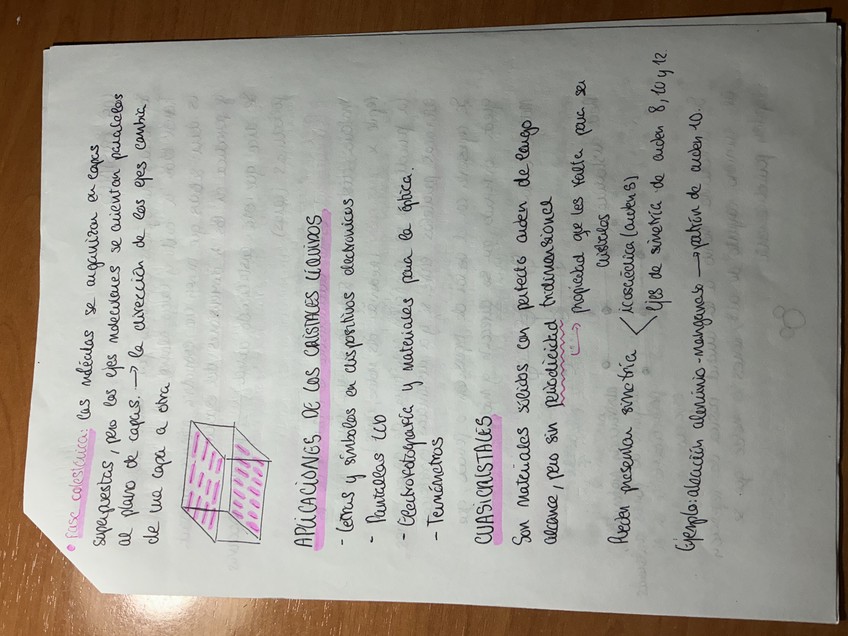 • Fase colestérica: las moléculas se organizan en capas
superpuestas, pero los ejes moleculares se orientan paralelos
al plano de capas. → la dirección de los ejes cambia
de una capa a otra
APLICACIONES DE LOS CRISTALES LÍQUIDOS
- Letras y símbolos en dispositivos electronicos
- Pantallas LCD
- Electrofotografía y materiales para la óptica.
- Termómetros
CUASICRISTALES
Son materiales sólidos con perfecto orden de largo
alcance, pero sin periodicidad tridimensional
→ propiedad que les falta para ser
cristales
Pueden presentar simetría < icosaédrica (orden 5)
Ejes de simetría de orden 8, 10 y 12
Ejemplo: aleación aluminio-manganeso → patrón de orden 10.